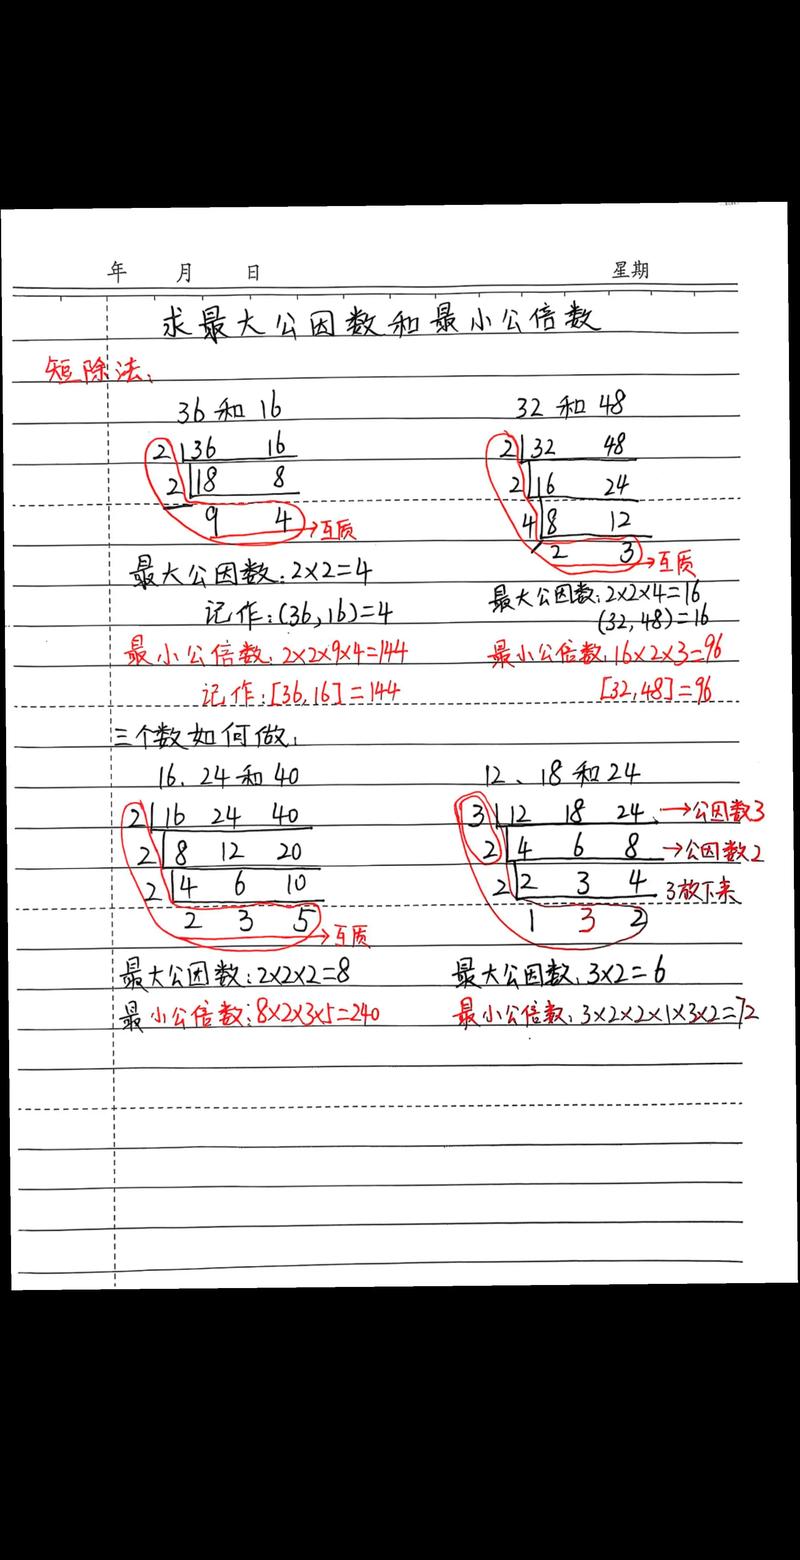 年 月 日 星期
求最大公因数和最小公倍数
短除法:
36和16
2 36 16
2 18 8
9 4 →互质
最大公因数:2×2=4
记作:(36,16)=4
最小公倍数:2×2×9×4=144
记作:[36,16]=144
32和48
2 32 48
2 16 24
4 8 12
2 3 →互质
最大公因数:2×2×4=16
(32,48)=16
最小公倍数:16×2×3=96
[32,48]=96
三个数如何做:
16、24和40
2 16 24 40
2 8 12 20
2 4 6 10
2 3 5 →互质
最大公因数:2×2×2=8
最小公倍数:8×2×3×5=240
12、18和24
3 12 18 24 →公因数3
2 4 6 8 →公因数2
2 2 3 4 3放下来
1 3 2
最大公因数:3×2=6
最小公倍数:3×2×2×1×3×2=72